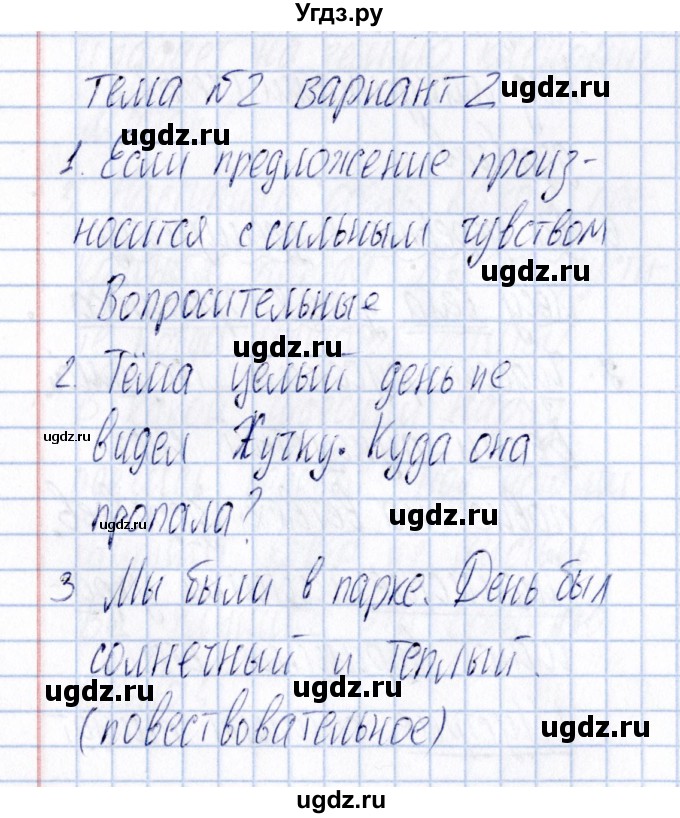 Угдз.ру
тема №2 вариант 2
ugdz.ru
ugdz.ru
1. Если предложение произ-
носится с сильным чувством
ugdz.ru
Вопросительные
ugdz.ru
2. Тёма целый день не
ugdz.ru
видел Жучку. Куда она
пропала?
ugdz.ru
ugdz.ru
3 Мы были в парке. День был
солнечный и теплый.
ugdz.ru
ugdz.ru
(повествовательное)
ugdz.ru
ugdz.ru